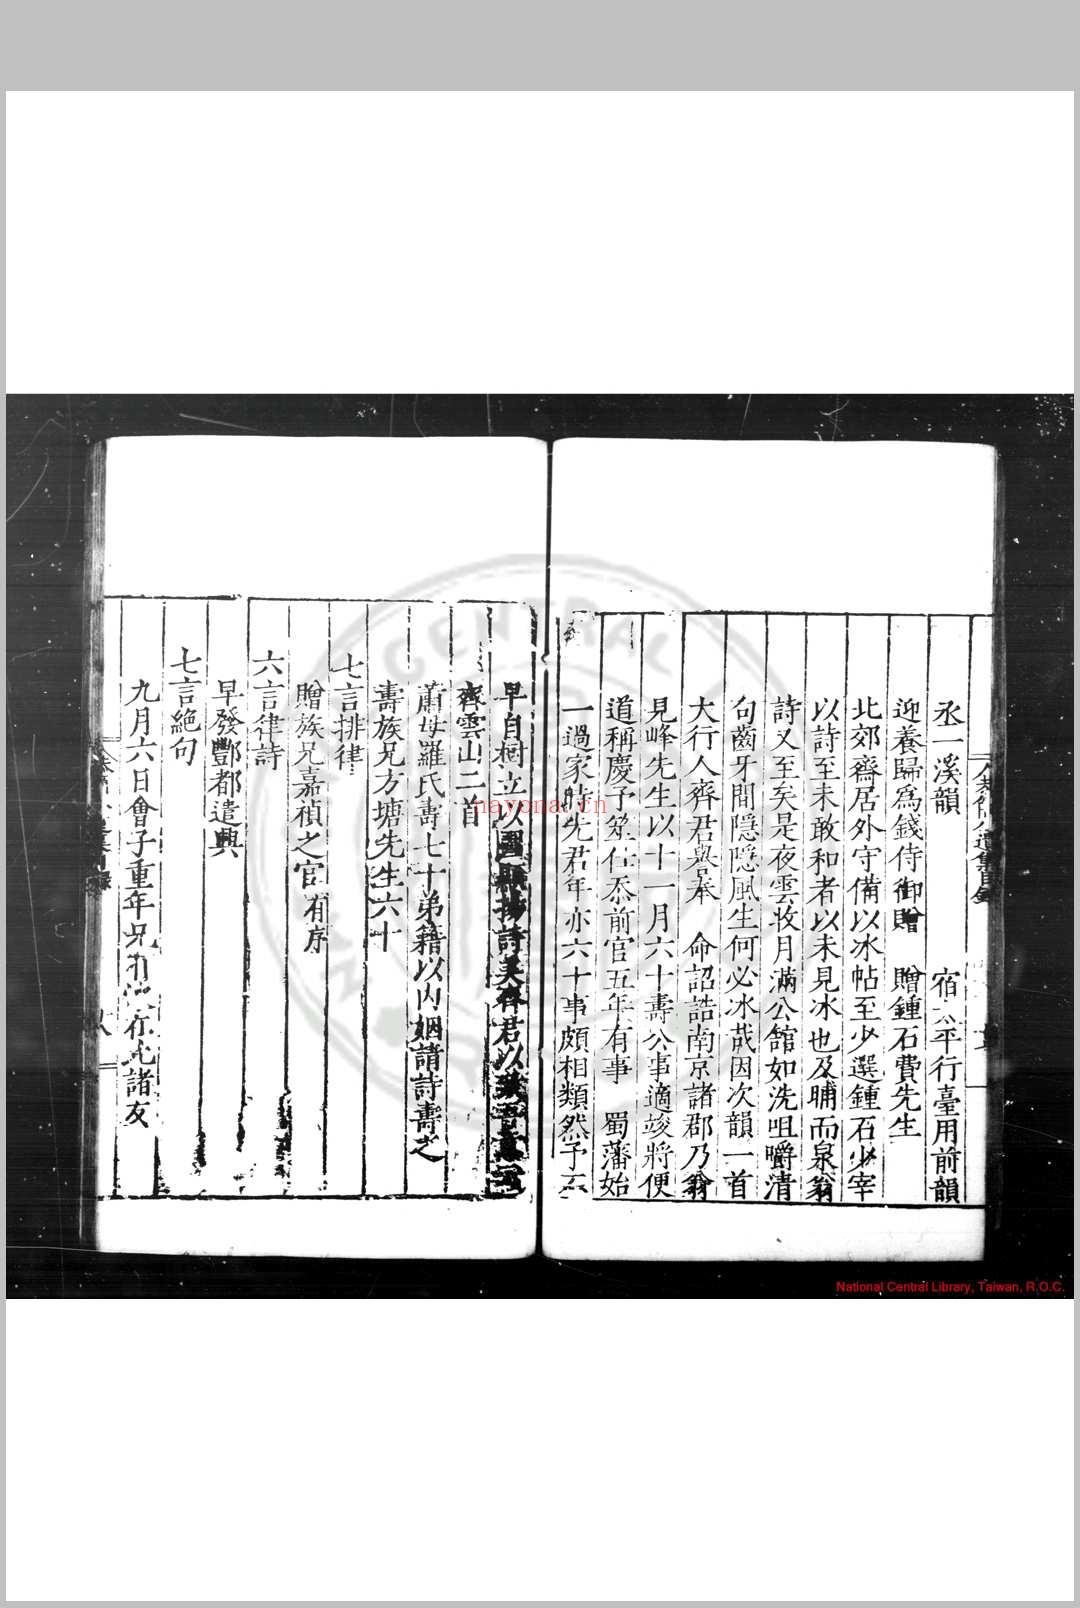 丞一溪韻　宿太平行臺用前韻
迎養歸爲錢侍御贈　贈鍾石費先生
北郊齋居外守備以冰帖至少選鍾石少宰
以詩至未敢和者以未見冰也及晡而泉翁
詩又至矣是夜雲收月滿公館如洗咀嚼清
句齒牙間隱隱風生何必冰哉因次韻一首
大行人齊君譽奉　命詔誥南京諸郡乃翁
見峰先生以十一月六十壽公事適竣將便
道稱慶予筮仕忝前官五年有事　蜀藩始
一過家時先君年亦六十事頗相類然予不
早自樹立以國
詩美齊君以
齊雲山二首
蕭母羅氏壽七十弟籍以内姻請詩壽之
壽族兄方塘先生六十
七言排律
贈族兄嘉禎之官有序
六言律詩
早發酆都遣興
七言絶句
九月六日會子重年兄
諸友
八
nayona.cn
National Central Library, Taiwan, R.O.C.